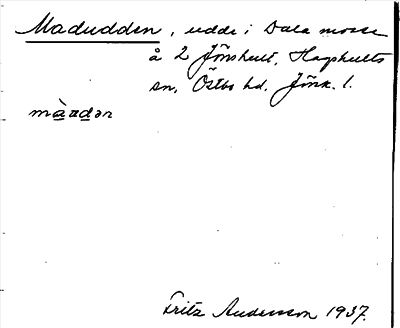 Madudden, udde i Dala mosse
å 2 Jönshult, Hagshults
sn, Östbo hd, Jönk. l.
Fritz Andersson 1937.